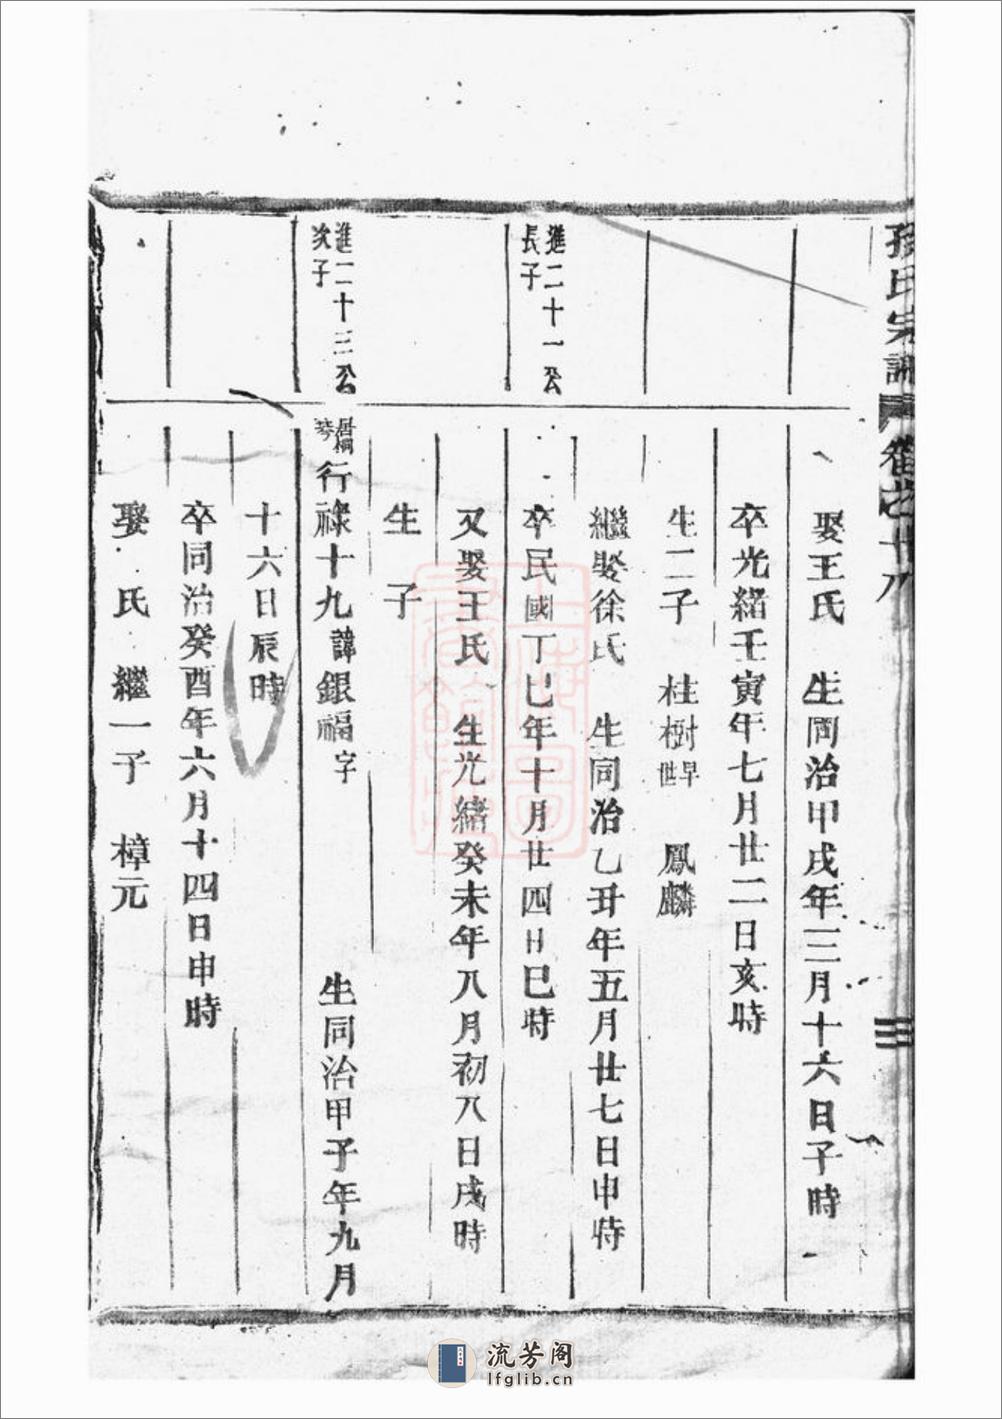 孫氏宗譜 卷之十八 三
娶王氏 生同治甲戌年三月十六日子時
卒光緒壬寅年七月廿二日亥時
生二子 桂樹早世 鳳麟
繼娶徐氏 生同治乙丑年五月廿七日申時
進二十一公長子
卒民國丁巳年十月廿四日巳時
又娶王氏 生光緒癸未年八月初八日戌時
生 子
進二十三公次子
行祿十九諱銀福字 生同治甲子年九月
十六日辰時
卒同治癸酉年六月十四日申時
娶 氏 繼一子 樟元
流芳阁
lfglib.cn